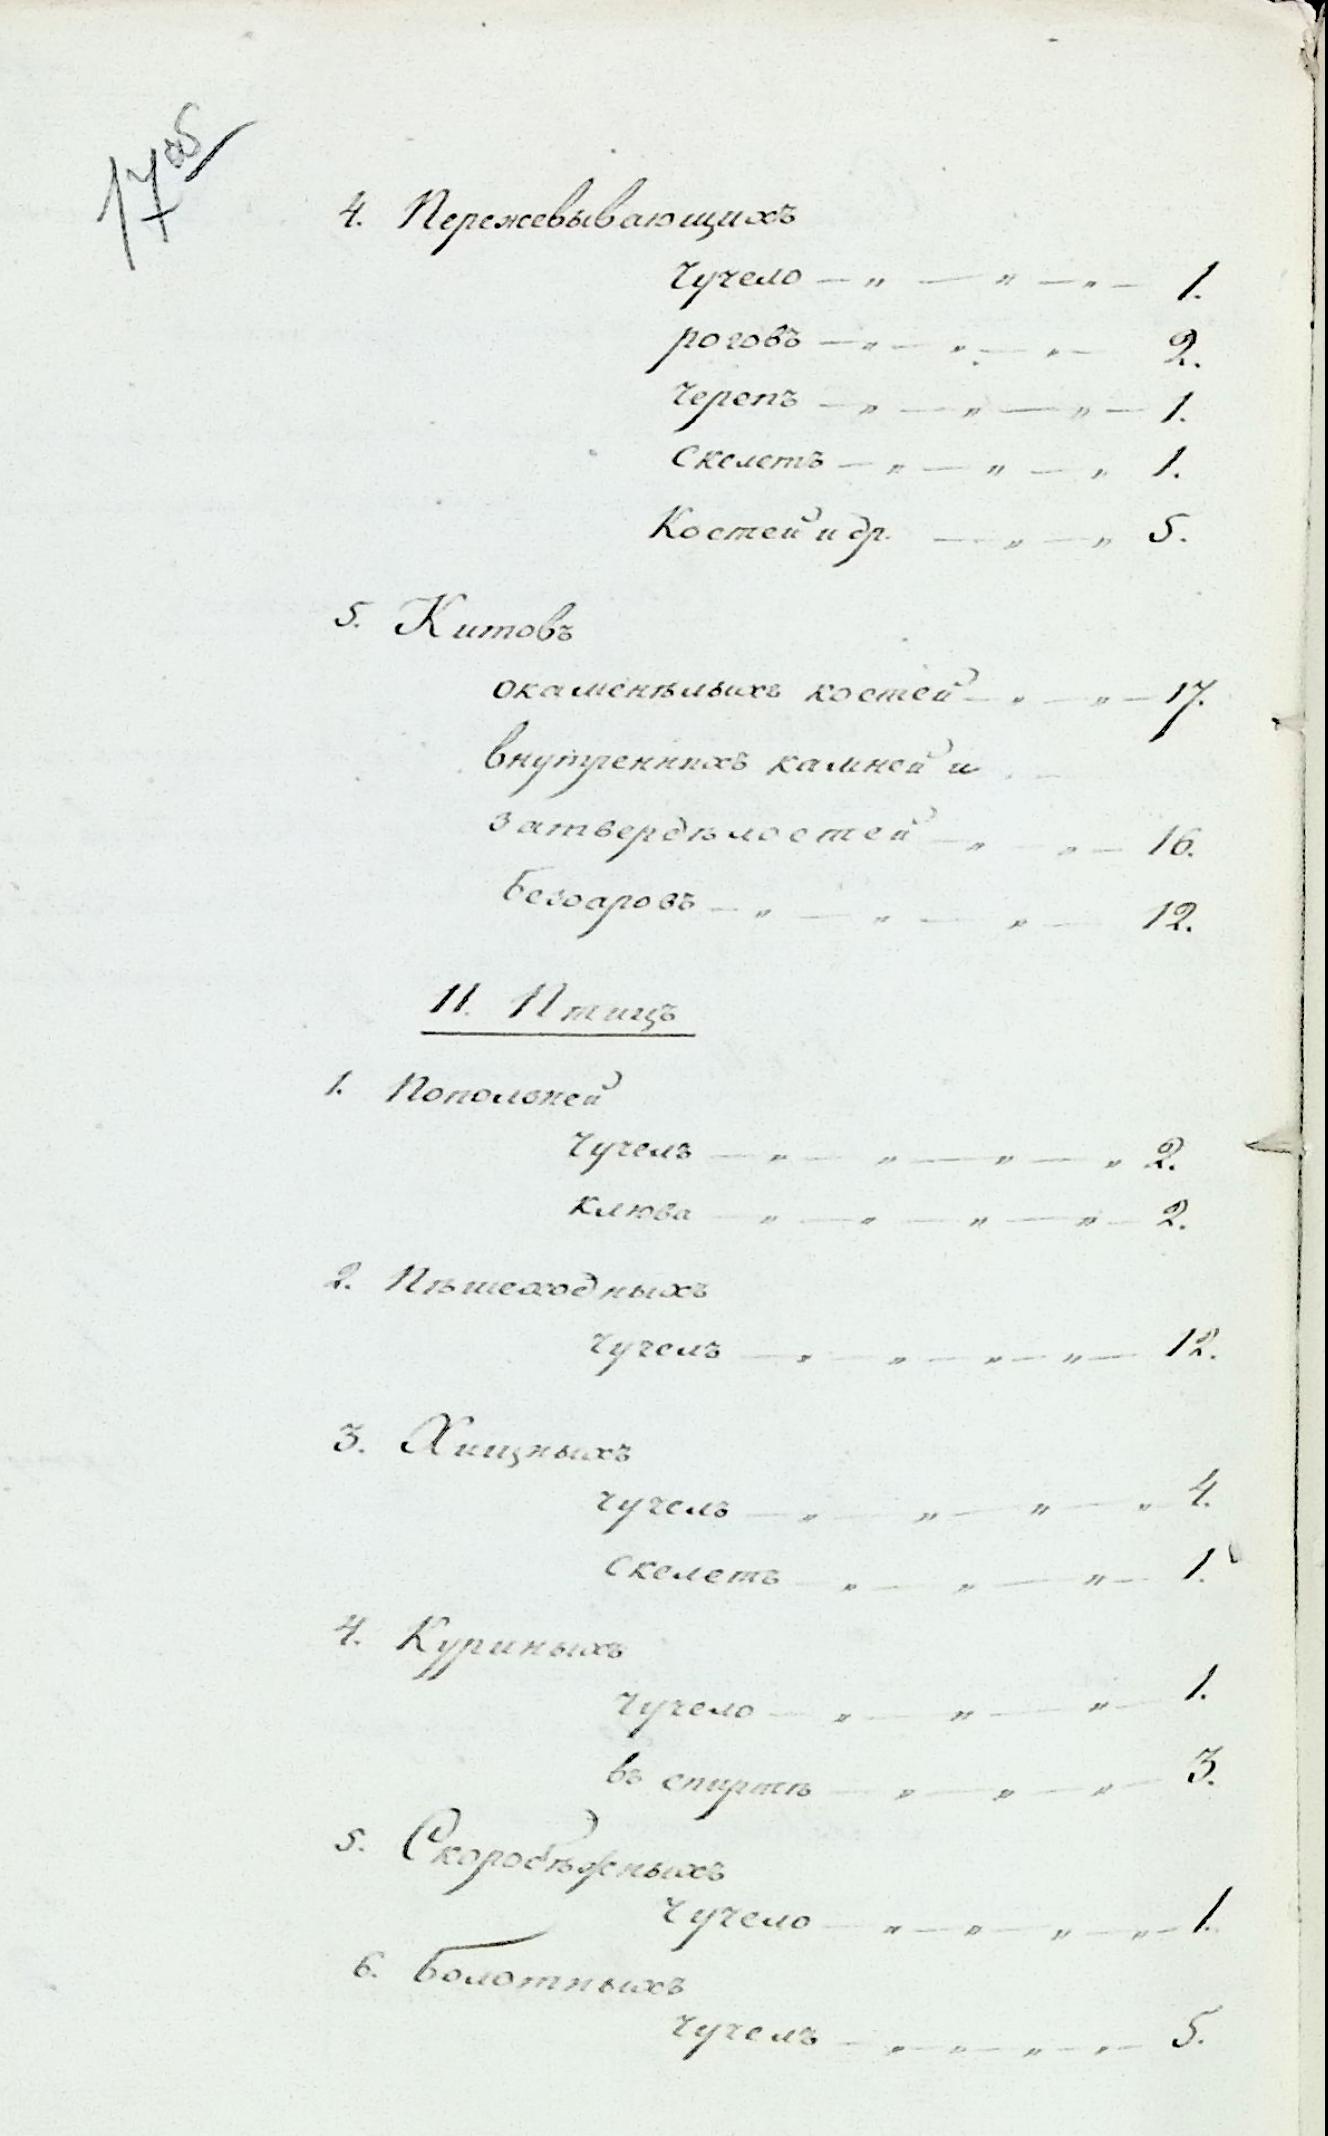 17об
4. Пережевывающихъ
Чучело — „ — „ — „ — 1.
роговъ — „ — „ — „ — 2.
Черепъ — „ — „ — „ — 1.
Скелетъ — „ — „ — „ 1.
Костей и др. — „ — „ 5.
5. Китовъ
окаменѣлыхъ костей — „ — „ — 17.
внутреннихъ камней и
затвердѣлостей — „ — „ — 16.
Безоаровъ — „ — „ — „ — 12.
II. Птицъ
1. Попользней
Чучелъ — „ — „ — „ — „ 2.
клюва — „ — „ — „ — „ — 2.
2. Пѣшеходныхъ
чучелъ — „ — „ — „ — „ — 12.
3. Хищныхъ
чучелъ — „ — „ — „ — „ 4.
скелетъ — „ — „ — „ — 1.
4. Куриныхъ
чучело — „ — „ — „ — 1.
въ спиртѣ — „ — „ — „ — 3.
5. Скоробѣжныхъ
Чучело — „ — „ — „ — „ — 1.
6. Болотныхъ
чучелъ — „ — „ — „ — „ — 5.